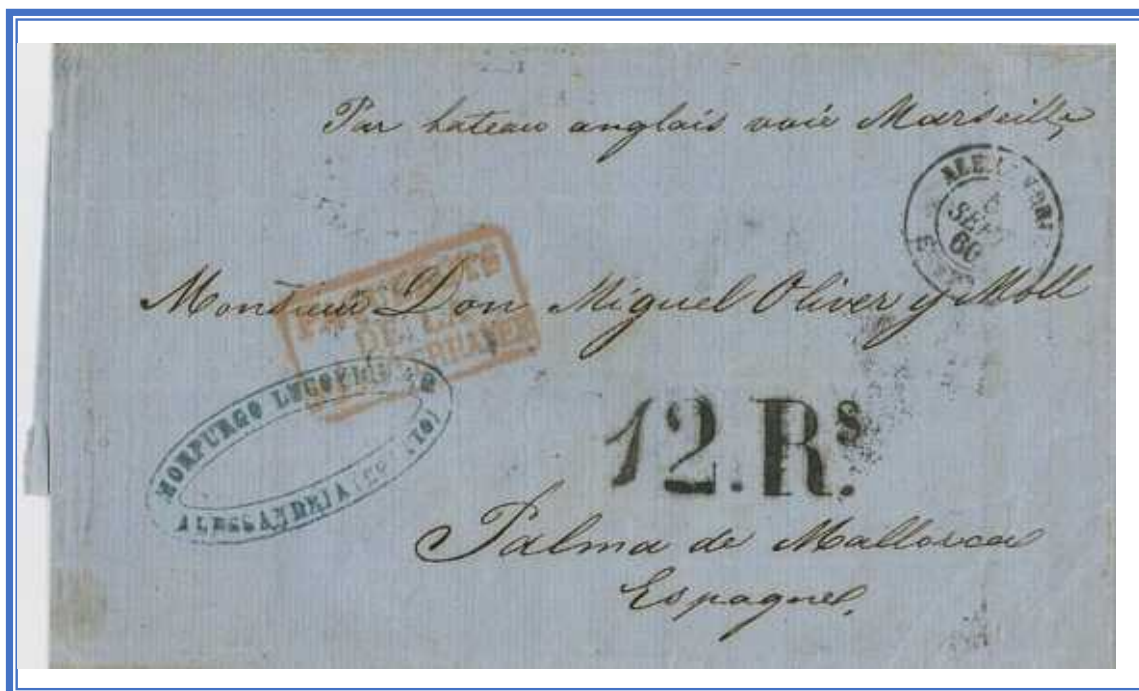 Par bateau anglais voie Marseille
SEPT
60
Monsieur Don Miguel Oliver y Moll
DE
MORPURGO
ALESSANDRIA
12.Rs.
Palma de Mallorca
Espagne